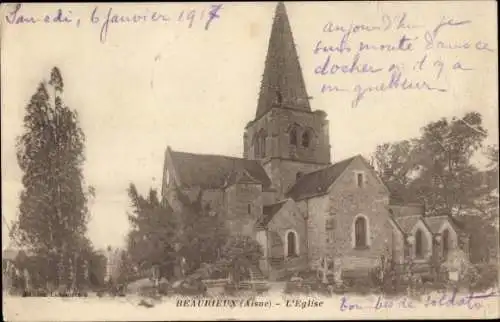 Samedi, 6 janvier 1917
Aujourd'hui je
suis monté dans ce
clocher où il y a
un guetteur
BEAURIEUX (Aisne) - L'Église
Tombes de Soldats